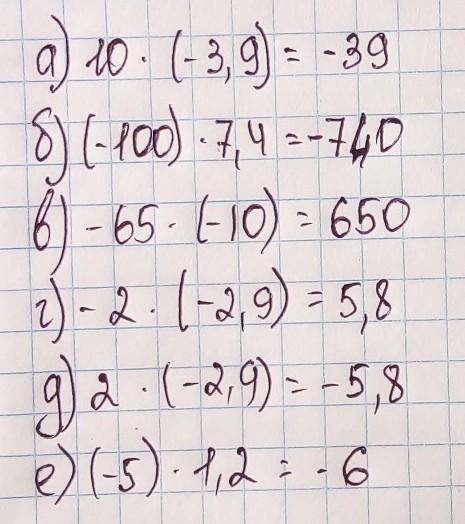 а) 10 · (-3,9) = -39
б) (-100) · 7,4 = -740
в) - 65 · (-10) = 650
г) - 2 · (-2,9) = 5,8
д) 2 · (-2,9) = -5,8
е) (-5) · 1,2 = - 6